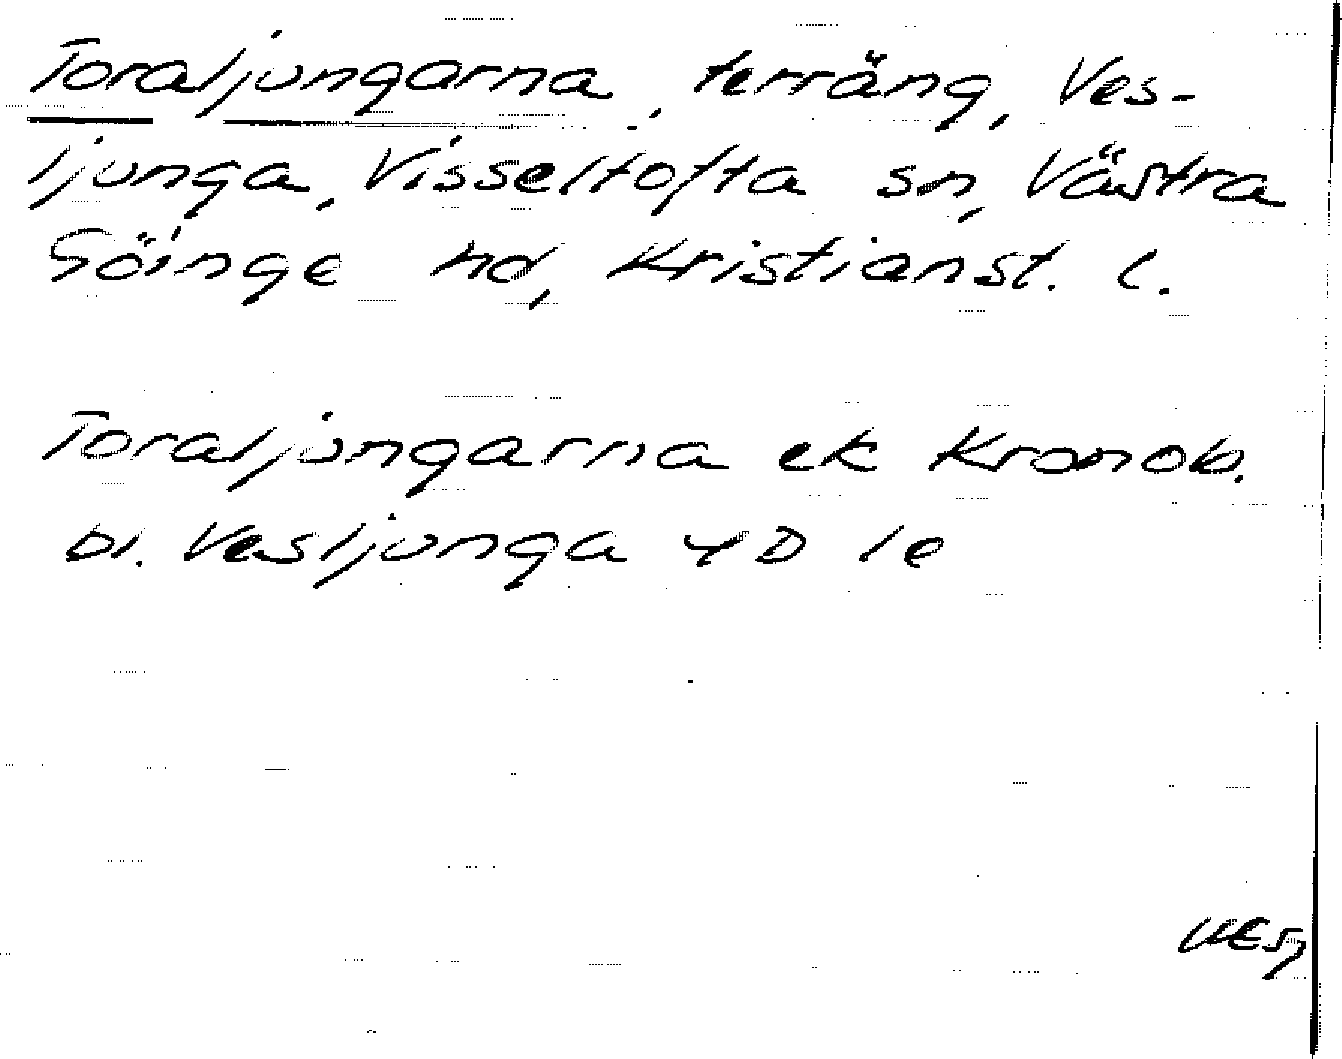 Toraljungarna, terräng, Ves-
ljunga, Visseltofta sn, Västra
Göinge hd, Kristianst. l.
Toraljungarna ek Kronob.
bl. Vesljunga 4D 1e